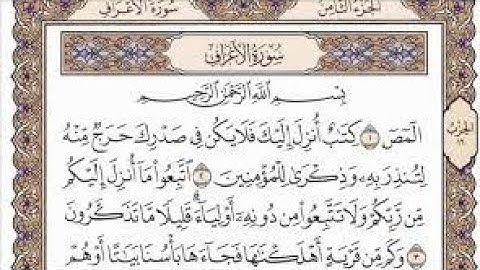 الجزء الثامن
سورة الأعراف
سُورَةُ الأَعْرَافِ
بِسْمِ ٱللَّهِ ٱلرَّحْمَٰنِ ٱلرَّحِيمِ
الٓمٓصٓ ١ كِتَٰبٌ أُنزِلَ إِلَيْكَ فَلَا يَكُن فِي صَدْرِكَ حَرَجٌ مِّنْهُ
لِتُنذِرَ بِهِۦ وَذِكْرَىٰ لِلْمُؤْمِنِينَ ٢ ٱتَّبِعُوا۟ مَآ أُنزِلَ إِلَيْكُم
مِّن رَّبِّكُمْ وَلَا تَتَّبِعُوا۟ مِن دُونِهِۦٓ أَوْلِيَآءَ ۗ قَلِيلًا مَّا تَذَكَّرُونَ
٣ وَكَم مِّن قَرْيَةٍ أَهْلَكْنَٰهَا فَجَآءَهَا بَأْسُنَا بَيَٰتًا أَوْ هُمْ
الحزب
١٦